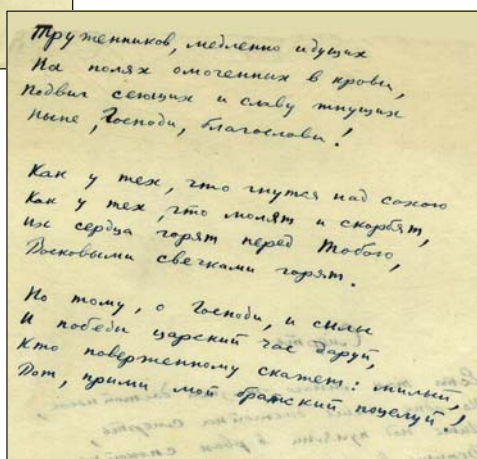 Тружеников, медленно идущих
На полях омоченных в крови,
Подвиг сеющих и славу жнущих
Ныне, Господи, благослови!
Как у тех, что гнутся над сохою
Как у тех, что молят и скорбят,
Их сердца горят перед Тобою,
Восковыми свечками горят.
Но тому, о Господи, и силы
И победы царский час даруй,
Кто поверженному скажет: милый,
Вот, прими мой братский поцелуй!